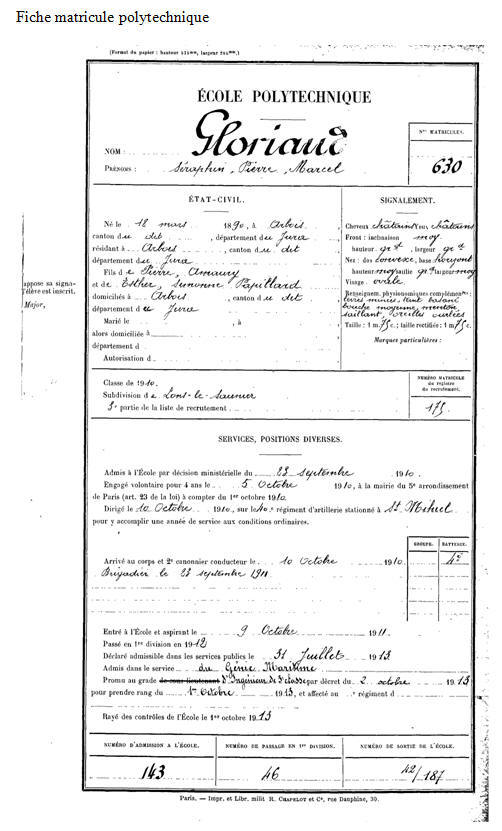 Fiche matricule polytechnique
(Format du papier : hauteur 315mm, largeur 205mm.)
ÉCOLE POLYTECHNIQUE
NOM : Gloriaud
PRÉNOMS : Séraphin, Pierre, Marcel
Nos MATRICULES.
630
ÉTAT-CIVIL.
Né le 18 mars 1890, à Arbois
canton du dit, département du Jura
résidant à Arbois, canton du dit
département du Jura
Fils de Pierre, Amaury
et de Esther, Papillard
domiciliés à Arbois, canton du dit
département du Jura
Marié le , à
alors domiciliée à
département d
Autorisation d
SIGNALEMENT.
Cheveux châtains Yeux châtains
Front : inclinaison moy
hauteur gr, largeur gr
Nez : dos convexe, base
hauteur moy saillie gr largeur moy
Visage ovale
Renseignem. physionomiques complémres :
lèvres minces, teint basané
bouche moyenne, menton
saillant, oreilles ourlées
Taille : 1 m. 75 c. ; taille rectifiée : 1 m. 75 c.
Marques particulières :
appose sa signa-
l'élève est inscrit.
Major,
Classe de 1910.
Subdivision de Lons-le-Saunier
3e partie de la liste de recrutement
NUMÉRO MATRICULE
du registre
du recrutement.
175
SERVICES, POSITIONS DIVERSES.
Admis à l'École par décision ministérielle du 23 septembre 1910.
Engagé volontaire pour 4 ans le 5 Octobre 1910, à la mairie du 5e arrondissement
de Paris (art. 23 de la loi) à compter du 1er octobre 1910.
Dirigé le 10 Octobre 1910, sur le 40e régiment d'artillerie stationné à St Mihiel
pour y accomplir une année de service aux conditions ordinaires.
GROUPE. BATTERIE.
Arrivé au corps et 2e canonnier conducteur le 10 Octobre 1910
Brigadier le 23 septembre 1911
Entré à l'École et aspirant le 9 Octobre 1911.
Passé en 1re division en 1912
Déclaré admissible dans les services publics le 31 Juillet 1913
Admis dans le service du Génie Maritime
Promu au grade de sous-lieutenant d'Ingénieur de 3e classe par décret du 2 octobre 1913
pour prendre rang du 1er Octobre 1913, et affecté au e régiment d
Rayé des contrôles de l'École le 1er octobre 1913
NUMÉRO D'ADMISSION A L'ÉCOLE.
143
NUMÉRO DE PASSAGE EN 1re DIVISION.
46
NUMÉRO DE SORTIE DE L'ÉCOLE.
42/187
Paris. — Impr. et Libr. milit R. CHAPELOT et Ce, rue Dauphine, 30.